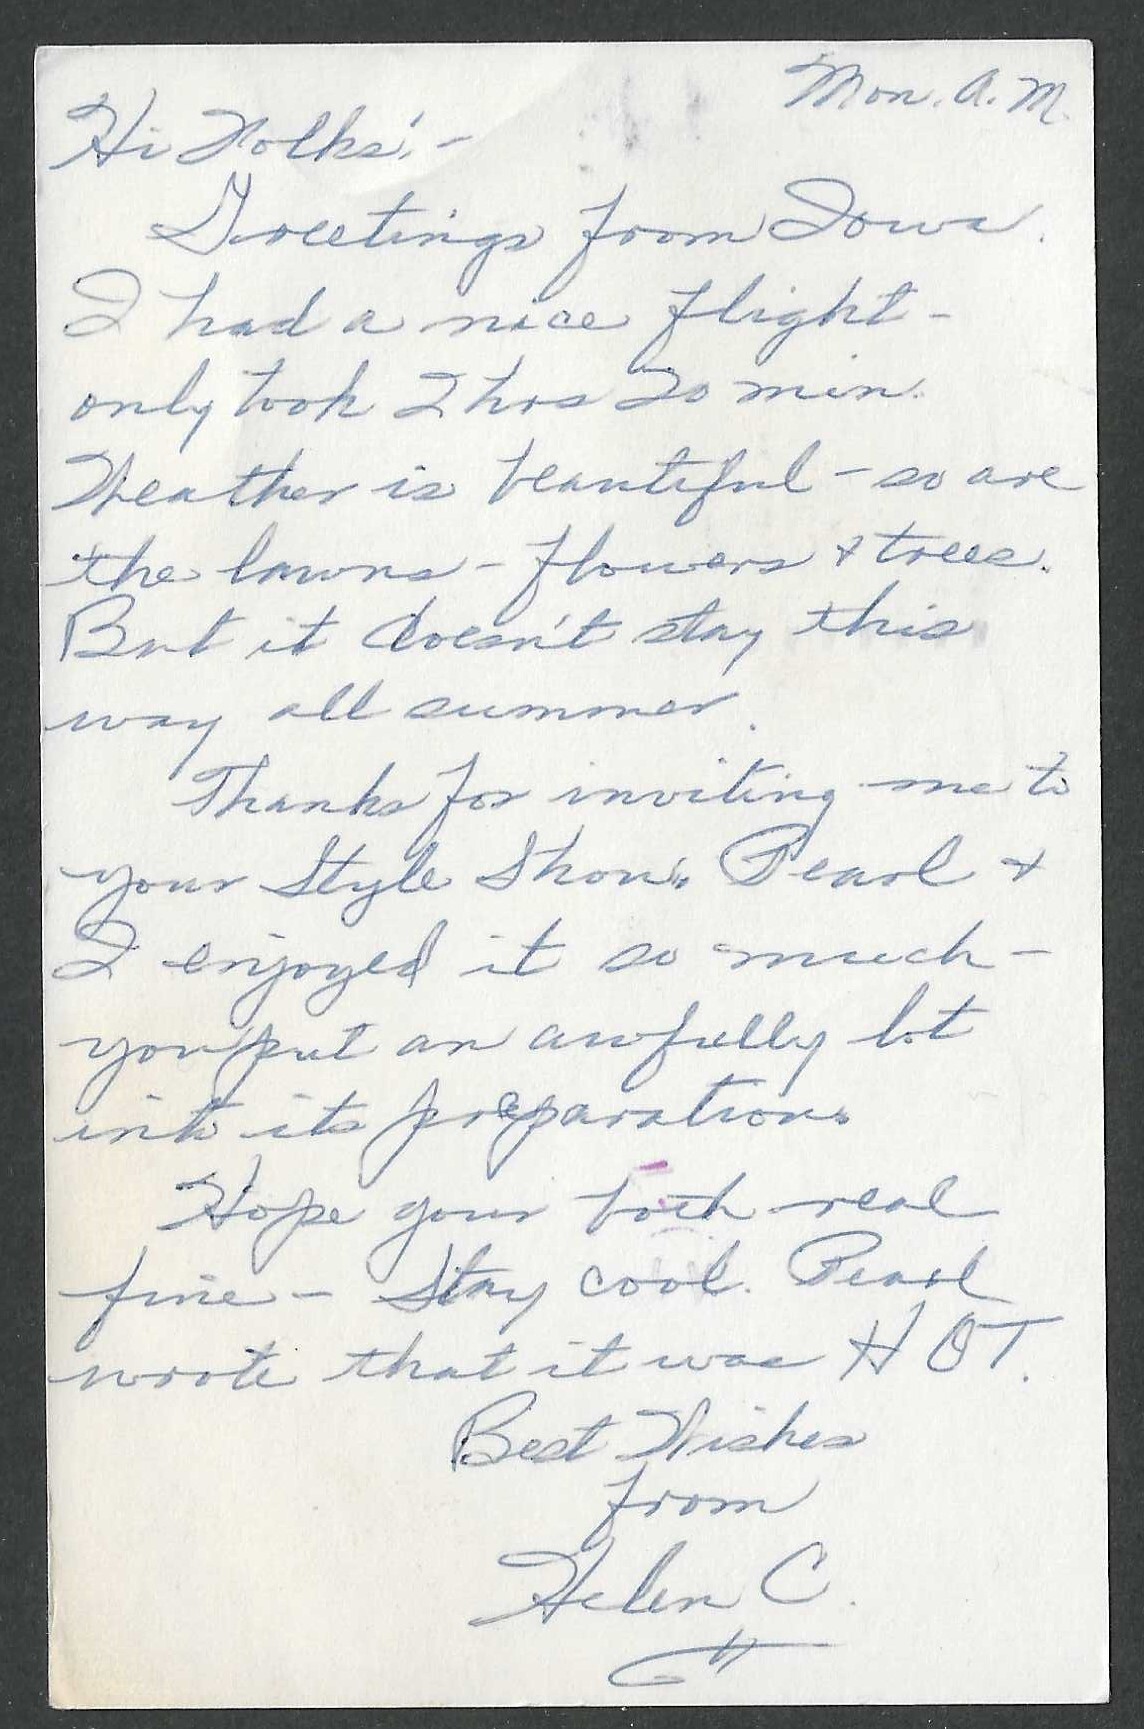 Mon. A.M.
Hi Folks! -
Greetings from Iowa.
I had a nice flight -
only took 2 hrs 20 min.
Weather is beautiful - so are
the lawns - flowers & trees.
But it doesn't stay this
way all summer.
Thanks for inviting me to
your Style Show. Pearl &
I enjoyed it so much -
you put an awfully lot
into its preparation.
Hope your both real
fine - Stay cool. Pearl
wrote that it was HOT.
Best Wishes
from
Helen C.